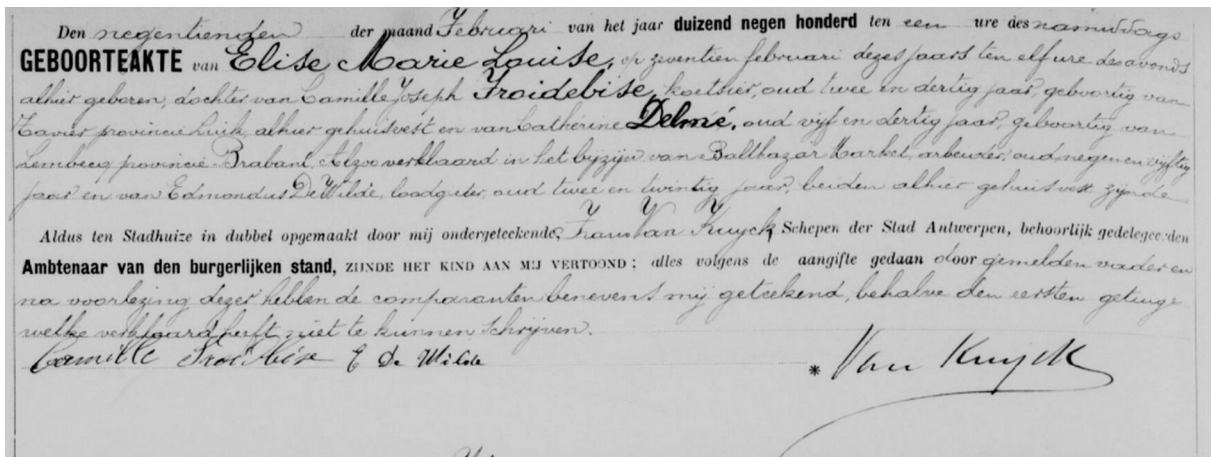 Den negentienden der maand Februari van het jaar duizend negen honderd ten een ure des namiddags
GEBOORTEAKTE van Elise Marie Louise, op zeventien februari dezes jaars ten elf ure des avonds
alhier geboren, dochter van Camille Joseph Froidebise, koetsier, oud twee en dertig jaar, geboortig van
Xavier provincie Luik, alhier gehuisvest en van Cathérine Delmé, oud vijf en dertig jaar, geboortig van
Lembecq provincie Brabant, Alzoo verklaard in het bijzijn van Balthazar Market, arbeider, oud negen en vijftig
jaar en van Edmondus De Wilde, loodgieter, oud twee en twintig jaar, beiden alhier gehuisvest zijnde
Aldus ten Stadhuize in dubbel opgemaakt door mij ondergeteekende, Frans Van Kuyck, Schepen der Stad Antwerpen, behoorlijk gedelegeerden
Ambtenaar van den burgerlijken stand, ZIJNDE HET KIND AAN MIJ VERTOOND; alles volgens de aangifte gedaan door gemelden vader en
na voorlezing dezer hebben de comparanten benevens mij geteekend, behalve den eersten getuige
welke verklaard heeft niet te kunnen schrijven.
Camille Froidebise E De Wilde * Van Kuyck